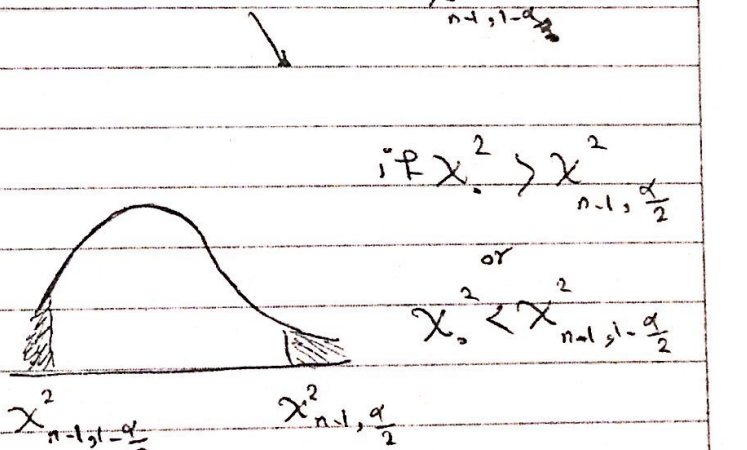 n-1, 1-α
if χ₀² > χ²ₙ₋₁, α/2
or
χ₀² < χ²ₙ₋₁, 1-α/2
χ²ₙ₋₁, 1-α/2 χ²ₙ₋₁, α/2